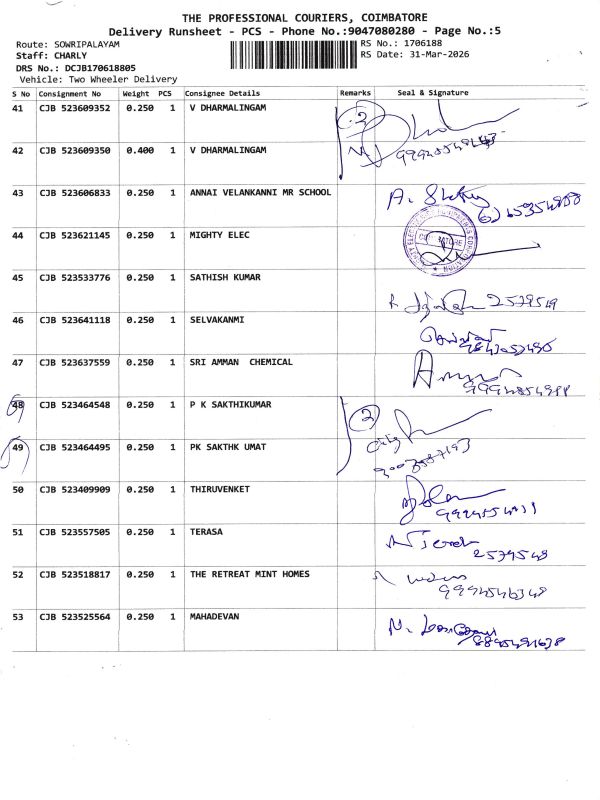 THE PROFESSIONAL COURIERS, COIMBATORE
Delivery Runsheet - PCS - Phone No.:9047080280 - Page No.:5
Route: SOWRIPALAYAM RS No.: 1706188
Staff: CHARLY RS Date: 31-Mar-2026
DRS No.: DCJB170618805
Vehicle: Two Wheeler Delivery
S No Consignment No Weight PCS Consignee Details Remarks Seal & Signature
41 CJB 523609352 0.250 1 V DHARMALINGAM 2
42 CJB 523609350 0.400 1 V DHARMALINGAM
43 CJB 523606833 0.250 1 ANNAI VELANKANNI MR SCHOOL
44 CJB 523621145 0.250 1 MIGHTY ELEC
45 CJB 523533776 0.250 1 SATHISH KUMAR 2579549
46 CJB 523641118 0.250 1 SELVAKANMI
47 CJB 523637559 0.250 1 SRI AMMAN CHEMICAL
48 CJB 523464548 0.250 1 P K SAKTHIKUMAR 2
49 CJB 523464495 0.250 1 PK SAKTHK UMAT
50 CJB 523409909 0.250 1 THIRUVENKET
51 CJB 523557505 0.250 1 TERASA 2579548
52 CJB 523518817 0.250 1 THE RETREAT MINT HOMES 9994546348
53 CJB 523525564 0.250 1 MAHADEVAN